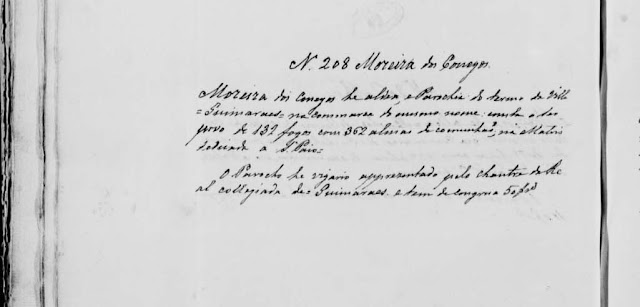 N. 208 Moreira dos Conegos.
Moreira dos Conegos he aldea, e Parochia do termo da Villa
=Guimaraes= na commarca do mesmo nome: consta o seo
povo de 132 fogos com 362 almas de comunhaõ, na Matris
dedicada a S. Paio=
O Parocho he vigario apprezentado pelo Chantre da Re
al collegiada de=Guimaraes e tem de congrua